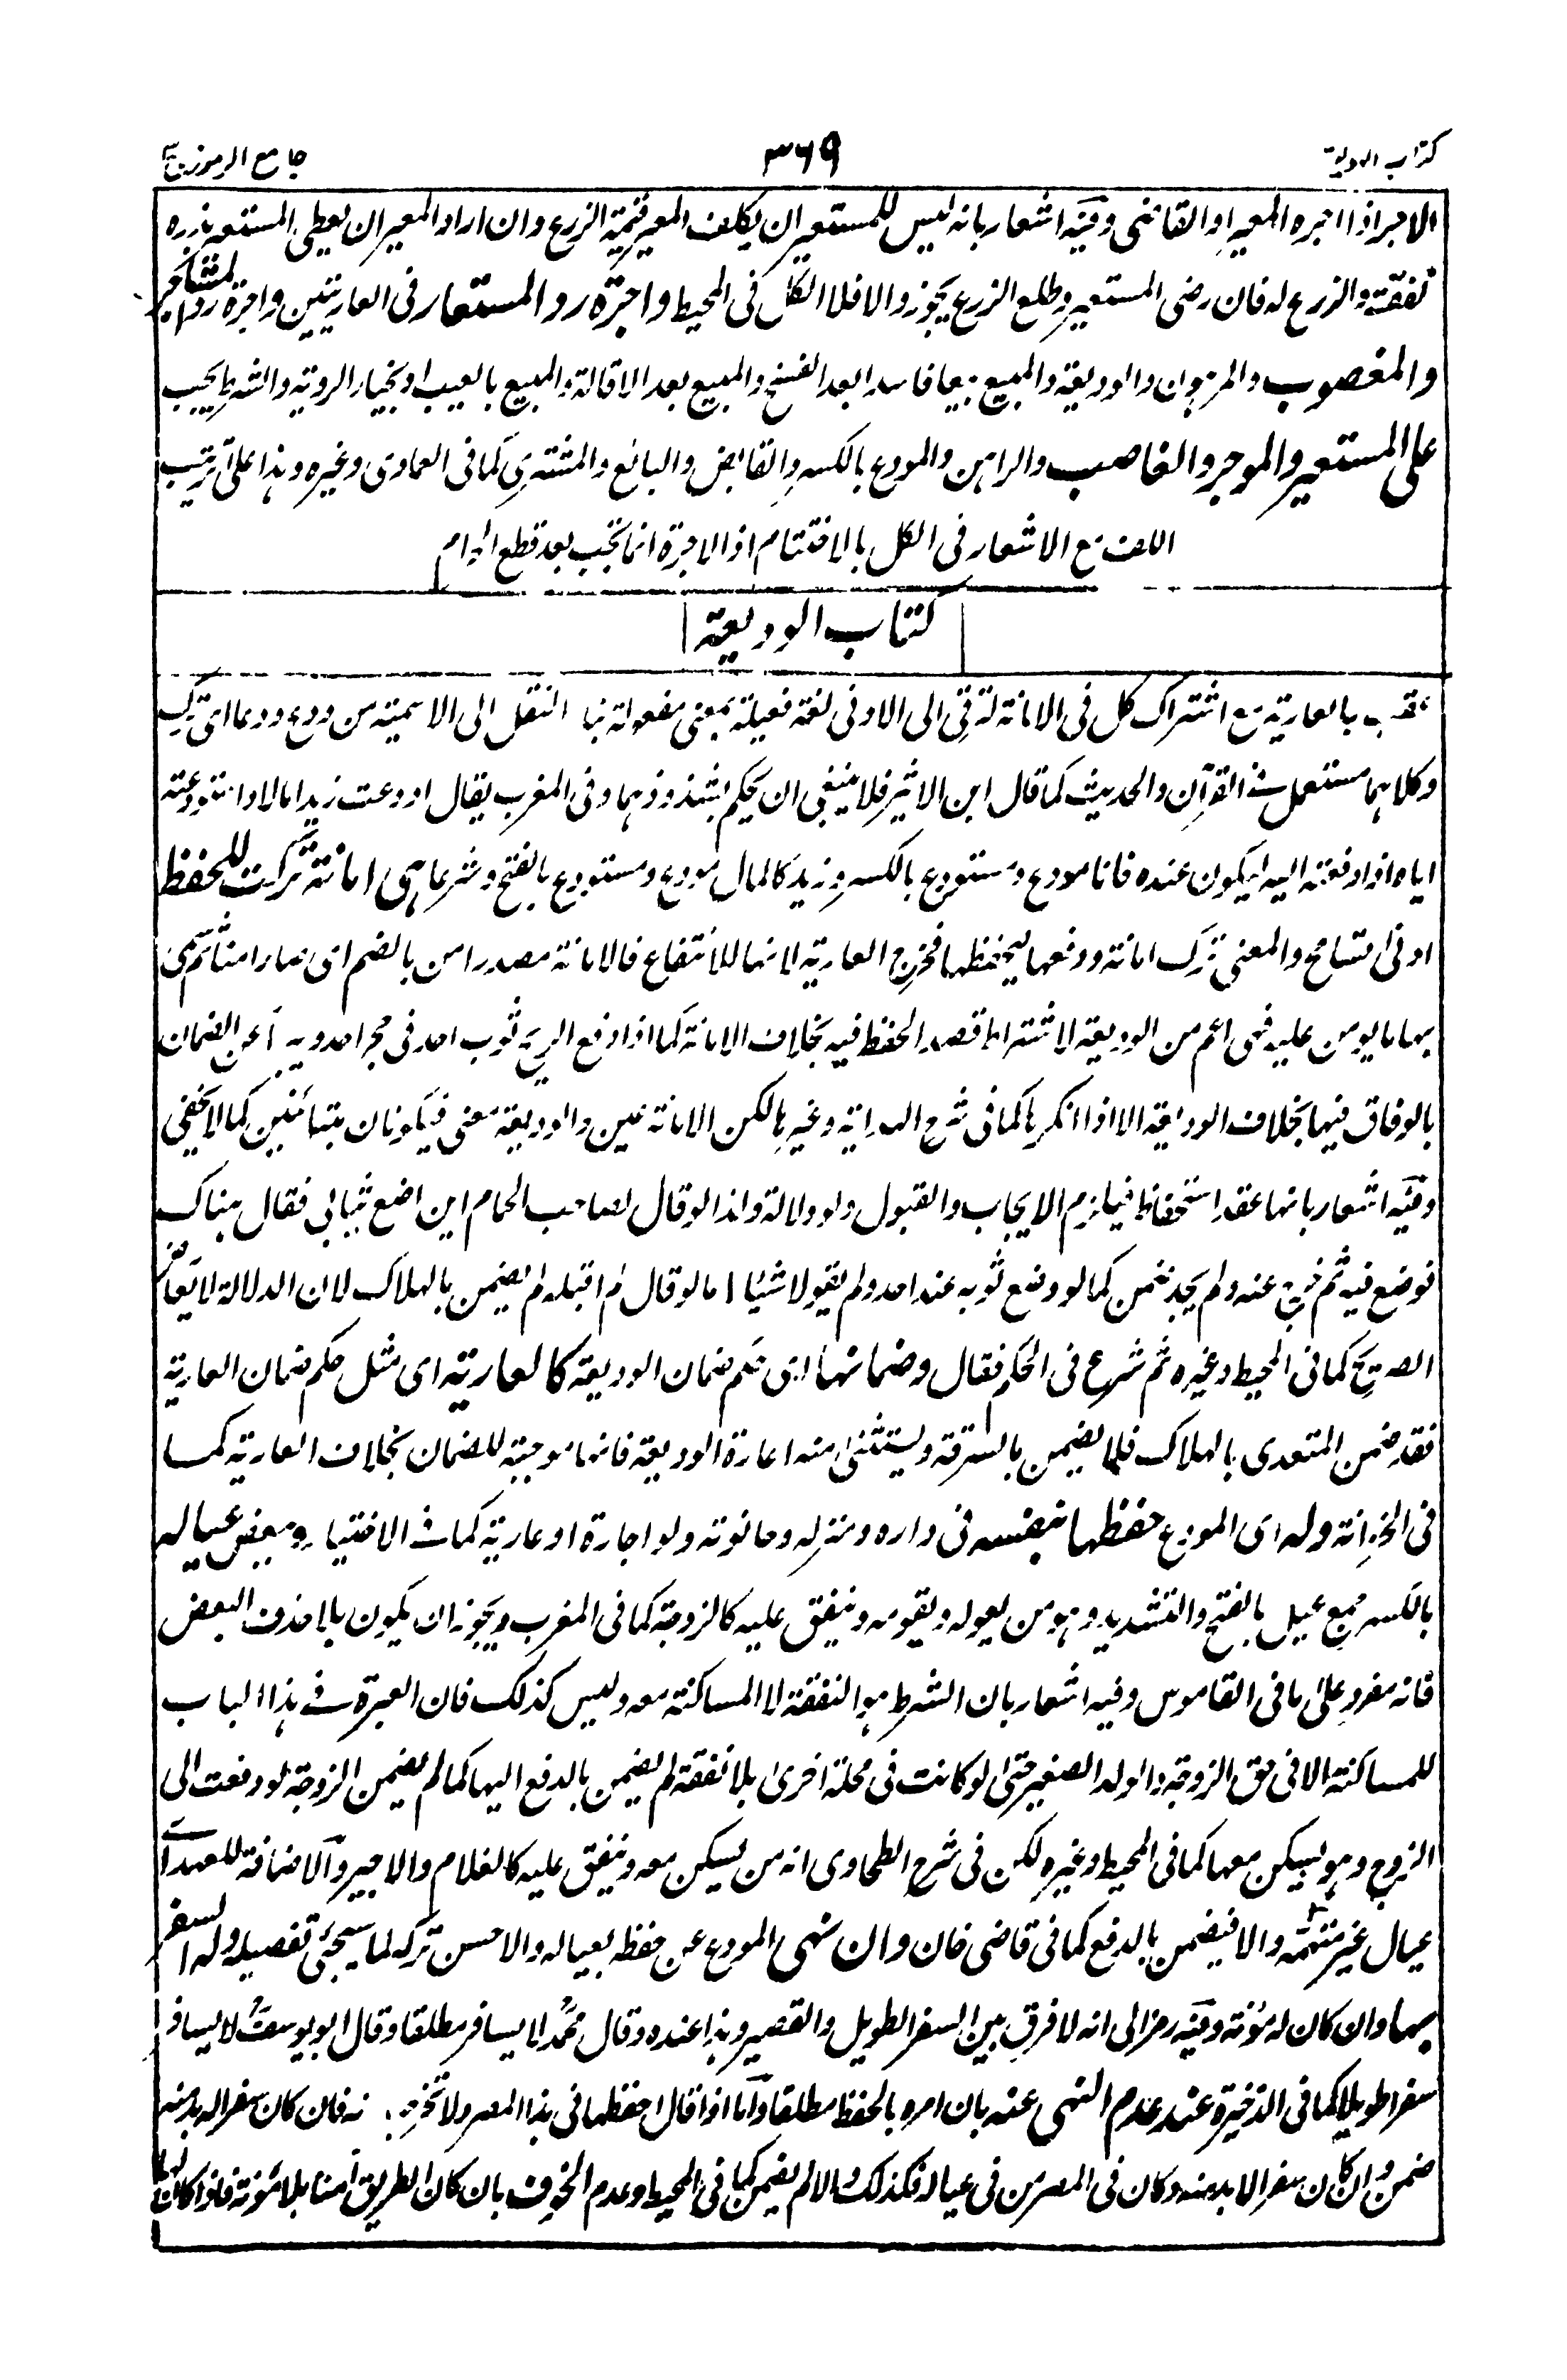 كتاب الوديعة
٣٦٩
جامع الرموز ج٣
الا جبر اذا اجبره المعير او القاضى وفيه اشعار بانه ليس للمستعير ان يكلف المعير قيمة الزرع وان اراد المعير ان يعطى المستعير بذره
نفقته والزرع له فان رضى المستعير وطلع الزرع يجوز والا فلا الكل فى المحيط واجرة رد المستعار فى العاريتين واجرة رد المستأجر
والمغصوب والمرهون والوديعة والمبيع بيعا فاسدا بعد الفسخ والمبيع بعد الاقالة والمبيع بالعيب او بخيار الروية والشرط يجب
على المستعير والموجر والغاصب والراهن والمودع بالكسر والقابض والبائع والمشترى كما فى العمادى وغيره وهذا على ترتيب
اللف مع الاشعار فى الكل بالاختتام اذ الاجرة انما تجب بعد قطع
كتاب الوديعة
عقب بالعارية مع اشتراك كل فى الامانة لترقى الى الاوفى لغة فعيلة بمعنى مفعولة بتاء النقل الى الاسمية من ودع ودعا اى ترك
وكلاهما مستعمل فى القرآن والحديث كما قال ابن الاثير فلا ينبغى ان يحكم بشذوذهما وفى المغرب يقال اودعت زيدا مالا واستودعته
اياه اذا دفعته اليه ليكون عنده فانا مودع ومستودع بالكسر وزيد كالمال مودع ومستودع بالفتح وشرعا هى امانة تركت للحفظ
اوفى التسامح والمعنى ترك امانة ودفعها ليحفظها فخرج العارية لانها للانتفاع فالامانة مصدر امن بالضم اى صار امنا ثم سمى
بها ما يومن عليه فهى اعم من الوديعة لاشتراط قصد الحفظ فيه بخلاف الامانة كما اذا وقع الريح ثوب احد فى حجر احد ويبرأ عن الضمان
بالوفاق فيها بخلاف الوديعة الا اذا انكرها كما فى شرح الهداية وغيرها لكن الامانة عين والوديعة معنى فيكونان متباينين كما لا يخفى
وفيه اشعار بانها عقد استحفاظ فيلزم الايجاب والقبول ولو دلالة ولذا لو قال لصاحب الحمام اين اضع ثيابى فقال هناك
فوضع فيه ثم خرج عنه ولم يجد ضمن كما لو وضع ثوبه عند احد ولم يقولا شيئا اما لو قال لم اقبله لم يضمن بالهلاك لان الدلالة لا يعارض
الصريح كما فى المحيط وغيره ثم شرع فى الحكم فقال وضمانها اى حكم ضمان الوديعة كالعارية اى مثل حكم ضمان العارية
فقد ضمن المتعدى بالهلاك فلا يضمن بالسرقة ويستثنى منه اعارة الوديعة فانها موجبة للضمان بخلاف العارية كما
فى الخزانة وله اى المودع حفظها بنفسه فى داره ومنزله وحانوته ولو اجارة او عارية كما فى الاختيار وببعض عياله
بالكسر جمع عيل بالفتح والتشديد وهو من يعوله ويقومه وينفق عليه كالزوجة كما فى المغرب ويجوز ان يكون بلا حذف البعض
فانه مفرد على ما فى القاموس وفيه اشعار بان الشرط هو النفقة لا المساكنة معه وليس كذلك فان العبرة فى هذا الباب
للمساكنة الا فى حق الزوجة والولد الصغير حتى لو كانت فى محلة اخرى بلا نفقة لم يضمن بالدفع اليها كما لم يضمن الزوجة لو دفعت الى
الزوج وهو يسكن معها كما فى المحيط وغيره لكن فى شرح الطحاوى انه من يسكن معه وينفق عليه كالغلام والاجير والاضافة للعهد اى
عيال غير متهمة والا فيضمن بالدفع كما فى قاضى خان وان نهى المودع عن حفظه بعياله والاحسن تركه لما سيجئ تفصيله وله السفر
بها وان كان له مؤنة وفيه رمز الى انه لا فرق بين السفر الطويل والقصير وهذا عنده وقال محمد لا يسافر مطلقا وقال ابو يوسف لا يسافر
سفرا طويلا كما فى الذخيرة عند عدم النهى عنه بان امره بالحفظ مطلقا واما اذا قال احفظها فى هذا المصر ولا تخرج فان كان سفرا له بد منه
ضمن وان كان سفرا لا بد منه وكان فى المصر من فى عياله فكذلك والا لم يضمن كما فى المحيط وعدم الخوف بان كان الطريق امنا بلا مؤنة فاذا كان لها